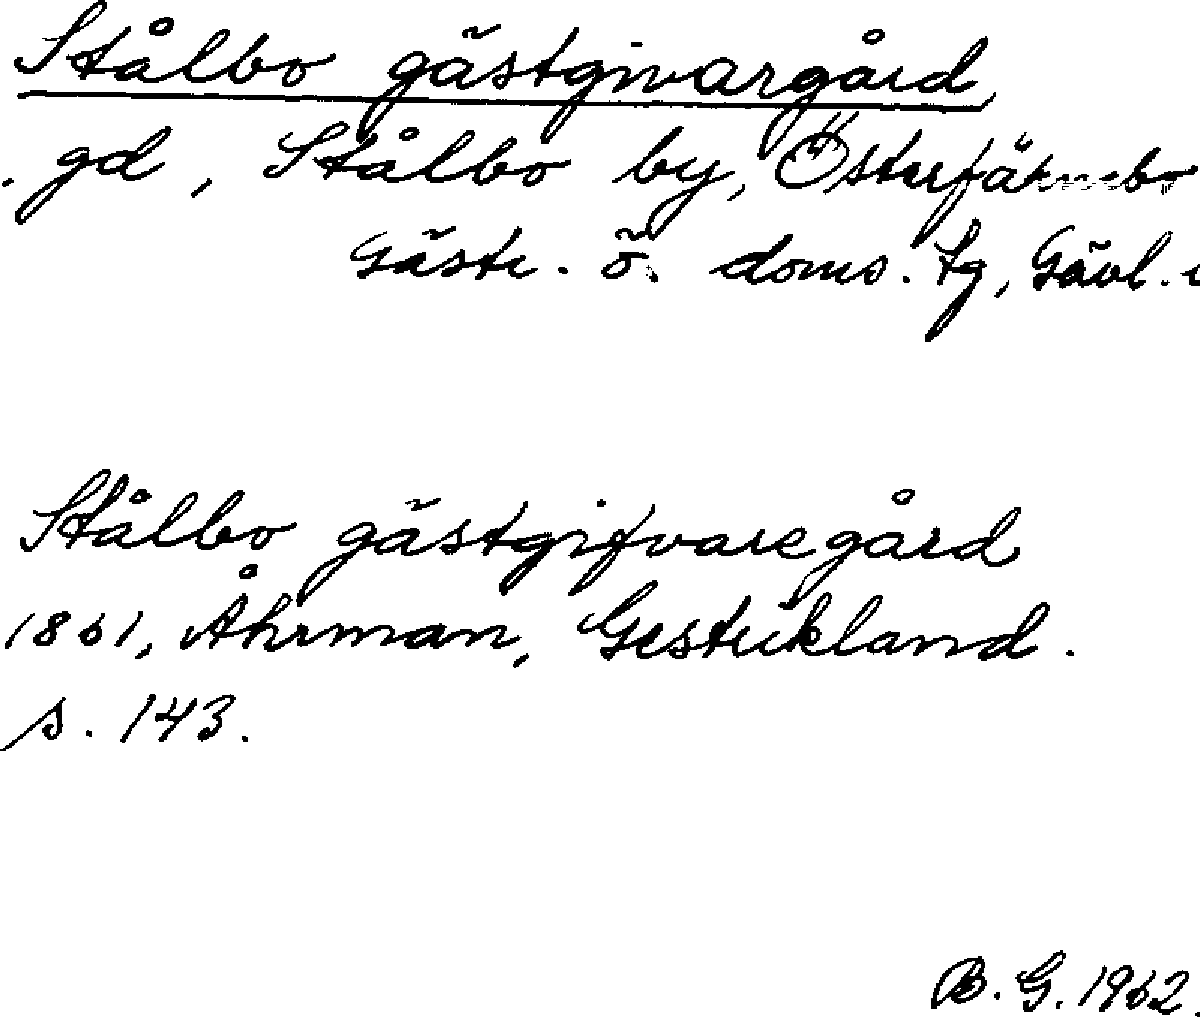 Stålbo gästgivargård,
. gd, Stålbo by, Österfärnebo
Gästr. ö. doms. tg, Gävl.
Stålbo gästgifvaregård
1861, Åhrman, Gestrikland.
s. 143.
B. G. 1962.